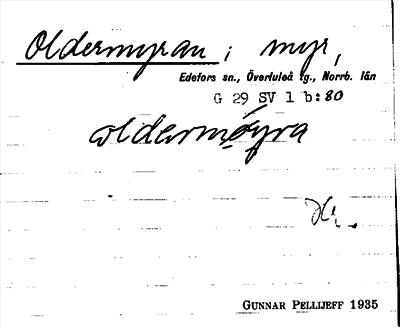 Oldermyran ; myr,
Edefors sn., Överluleå tg., Norrb. län
G 29 SV 1 b:80
åldermø̀yra
Hr.
GUNNAR PELLIJEFF 1935